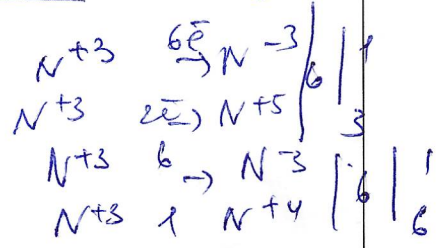 N+3 6ē → N-3 | 6 | 1
N+3 2ē → N+5 | | 3
N+3 6 → N-3 | 6 | 1
N+3 1 N+4 | | 6